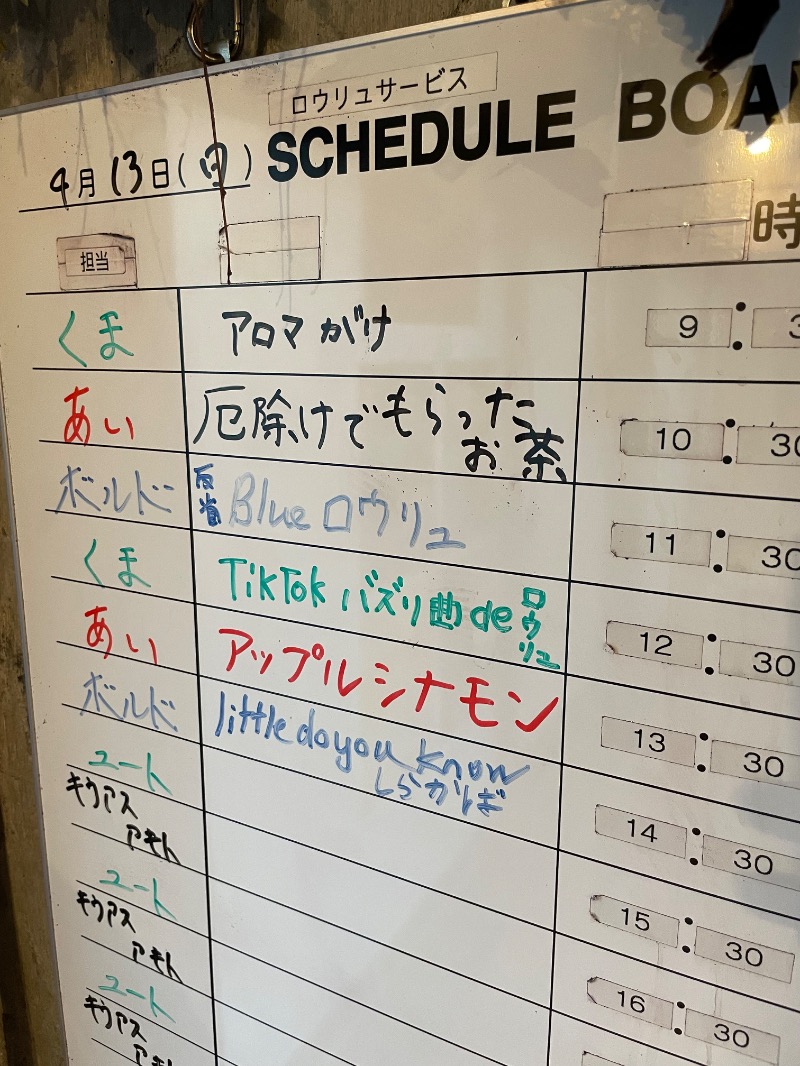 ロウリュサービス
4月13日(日) SCHEDULE BOA
担当
時
くま アロマがけ 9 : 3
あい 厄除けでもらった
お茶 10 : 30
ボルド 反省 Blue ロウリュ 11 : 30
くま TikTok バズり曲de ロウリュ 12 : 30
あい アップルシナモン 13 : 30
ボルド little do you know
しらかば 14 : 30
ユート
キウアス
アキト 15 : 30
ユート
キウアス
アキト 16 : 30
ユート
キウアス
アキト